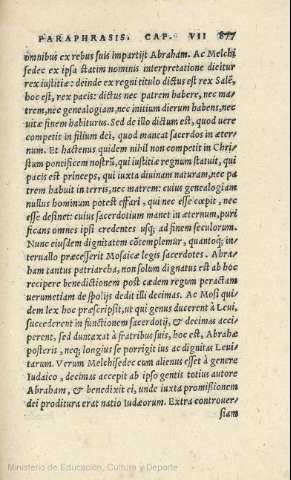 PARAPHRASIS. CAP. VII 877
omnibus ex rebus suis impartijt Abraham. Ac Melchi
sedec ex ipsa statim nominis interpretatione dicitur
rex iustitiæ: deinde ex regni titulo dictus est rex Salē,
hoc est, rex pacis: dictus nec patrem habere, nec ma-
trem, nec genealogiam, nec initium dierum habens, nec
uitæ finem habiturus. Sed de illo dictum est, quod uere
competit in filium dei, quod maneat sacerdos in æter-
num. Et hactenus quidem nihil non competit in Chri
stum pontificem nostrū, qui iustitiæ regnum statuit, qui
pacis est princeps, qui iuxta diuinam naturam, nec pa
trem habuit in terris, nec matrem: cuius genealogiam
nullus hominum potest effari, qui nec esse cœpit, nec
esse desinet: cuius sacerdotium manet in æternum, puri
ficans omnes ipsi credentes usq; ad finem seculorum.
Nunc eiusdem dignitatem cōtemplemur, quantoq; in-
teruallo præcesserit Mosaicæ legis sacerdotes. Abra-
ham tantus patriarcha, non solum dignatus est ab hoc
recipere benedictionem post cædem regum peractam
uerumetiam de spolijs dedit illi decimas. Ac Mosi qui
dem lex hoc præscripsit, ut qui genus ducerent à Leui,
succederent in functionem sacerdotij, & decimas acci
perent, sed duntaxat à fratribus suis, hoc est, Abrahæ
posteris, neq; longius se porrigit ius ac dignitas Leui-
tarum. Verum Melchisedec cum alienus esset à genere
Iudaico, decimas accepit ab ipso gentis totius autore
Abraham, & benedixit ei, unde iuxta promissionem
dei proditura erat natio Iudæorum. Extra controuer-
siam
Ministerio de Educación, Cultura y Deporte